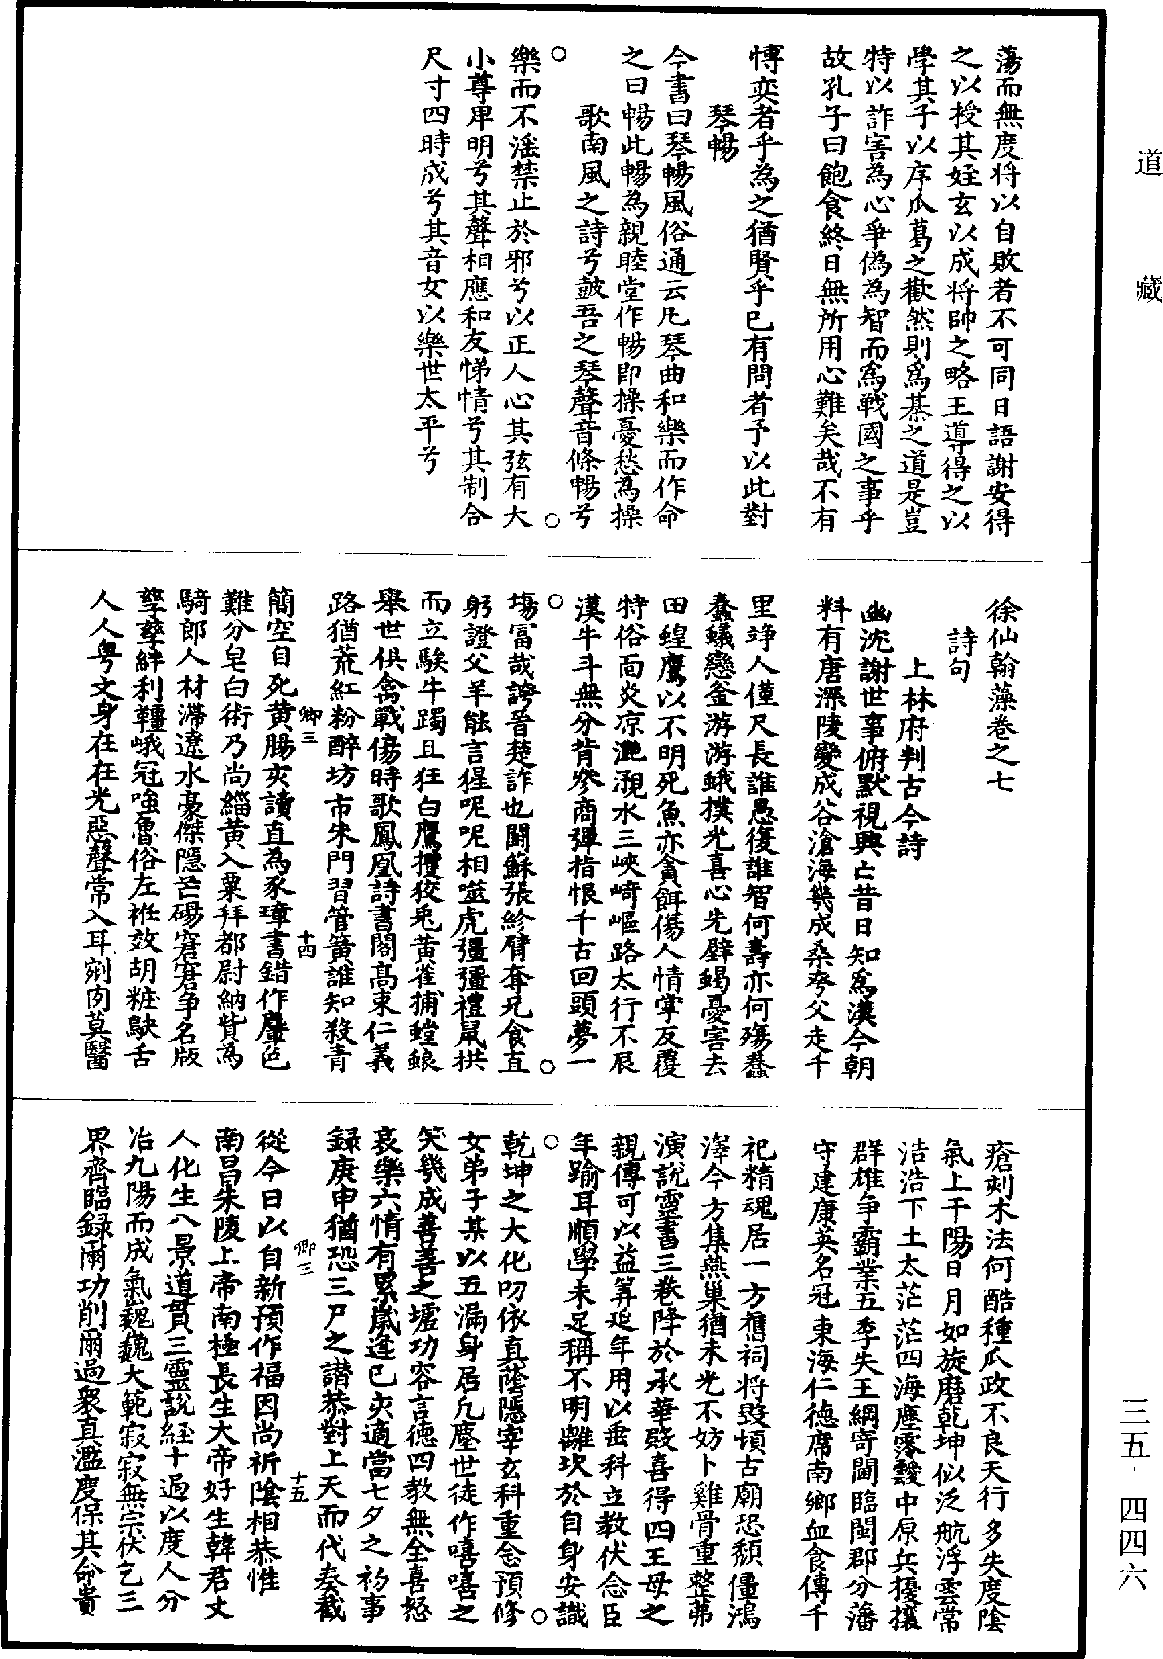 道藏
蕩而無度将以自敗者不可同日語謝安得
之以授其姪玄以成将帥之略王導得之以
學其子以序瓜葛之歡然則為棊之道是豈
特以詐害為心爭偽為智而為戰國之事乎
故孔子曰飽食終日無所用心難矣哉不有
博奕者乎為之猶賢乎已有問者予以此對
琴暢
今書曰琴暢風俗通云凡琴曲和樂而作命
之曰暢此暢為親睦堂作暢即操憂愁為操
歌南風之詩兮鼓吾之琴聲音條暢兮
樂而不滛禁止於邪兮以正人心其弦有大
小尊卑明兮其聲相應和友悌情兮其制合
尺寸四時成兮其音女以樂世太平兮
徐仙翰藻卷之七
詩句
上林府判古今詩
幽沈謝世事俯默視興亡昔日知為漢今朝
料有唐深陵變成谷滄海幾成桑夸父走千
里竫人僅尺長誰愚復誰智何壽亦何殤蠢
蠢蟻戀釜游游蛾撲光喜心先壁蝎憂害去
田蝗鷹以不明死魚亦貪餌傷人情寧反覆
特俗面炎凉灔澦水三峽崎嶇路太行不辰
漢牛斗無分背參商彈指恨千古回頭夢一
塲富哉誇晉楚詐也鬪蘇張紾臂奪兄食直
躬證父羊能言猩呢呢相噬虎彊彊禮鼠拱
而立騃牛躅且狂白鷹攫狡兎黄雀捕螳蜋
舉世俱禽戰傷時歌鳳凰詩書閣高束仁義
路猶荒紅粉醉坊市朱門習管簧誰知殺青
卿三
十四
簡空自死黄腸夾讀直為豕璋書錯作麞色
難分皂白術乃尚緇黄入粟拜都尉納貲為
騎郎人材滯遼水豪傑隱芒碭窘窘争名版
孳孳絆利韁峨冠嗤魯俗左袵效胡粧鴃舌
人人粤文身在在光惡聲常入耳剜肉莫醫
瘡刻木法何酷種瓜政不良天行多失度陰
氣上干陽日月如旋磨乾坤似泛航浮雲常
浩浩下土太茫茫四海塵雰靉中原兵擾攘
群雄争霸業五季失王綱寄閫臨閩郡分藩
守建康英名冠東海仁德席南鄉血食傳千
祀精魂居一方舊祠将毁頃古廟恐頹僵鴻
澤今方集燕巢猶未光不妨卜雞骨重整茀
演説靈書三巻降於承華殿喜得四王母之
親傳可以益筭延年用以垂科立教伏念臣
年踰耳順學未足稱不明離坎於自身安識
乾坤之大化叨依真䕃隱宰玄科重念預修
女弟子某以五漏身居凢塵世徒作嘻嘻之
笑幾成善善之墟功容言德四教無全喜怒
哀樂六情有累嵗逢已夾適當七夕之初事
録庚申猶恐三尸之譛恭對上天而代奏截
卿三
十五
從今日以自新預作福因尚祈陰相恭惟
南昌朱陵上帝南極長生大帝好生韓君丈
人化生八景道貫三靈説経十過以度人分
冶九陽而成氣巍巍大範寂寂無宗伏乞三
界齊臨録爾功削爾過衆真濫度保其命貴
三五·四四六